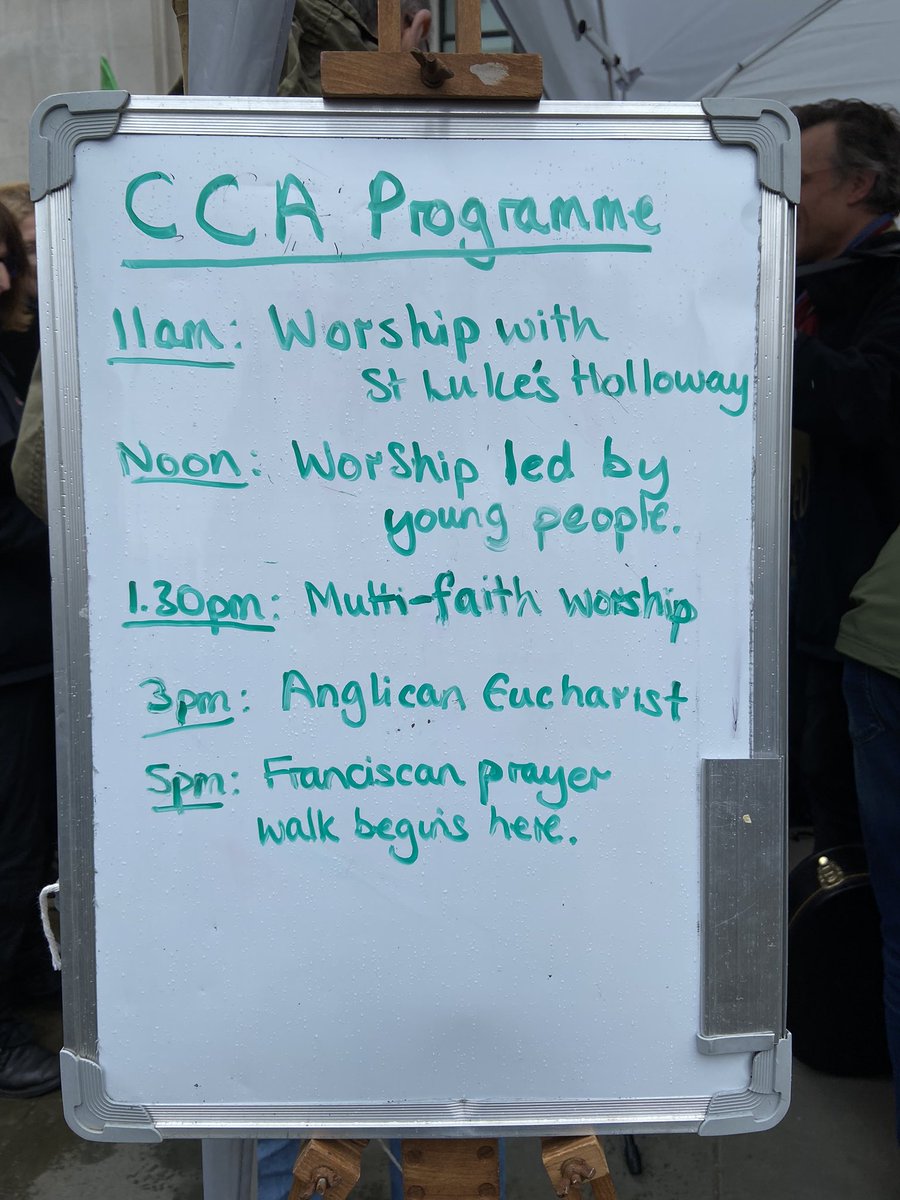 CCA Programme
11am: Worship with
St Luke's Holloway
Noon: Worship led by
young people.
1.30pm: Multi-faith worship
3pm: Anglican Eucharist
5pm: Franciscan prayer
walk begins here.